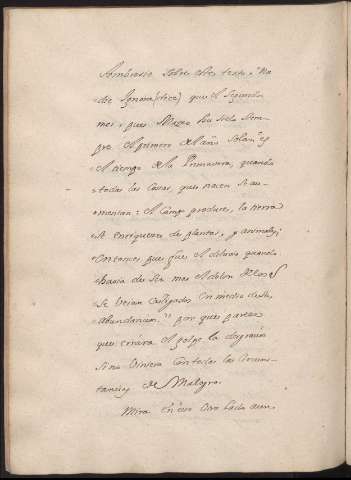 Ambrosio sobre este texto: "Na-
"die Ignora (dice) que el Segundo
"mes, pues Marzo ha sido siem-
"pre el primero del año solar, es
"el tiempo de la Primavera, quando
"todas las Cosas, que nacen se au-
"mentan: el Campo produce, la tierra
"se enriquece de plantas, y animales;
"entonces pues fue el diluvio quando
"havia de ser mas el dolor de los q.e
"se veian castigados en medio de su
"abundancia." por que parece
que errara el golpe la desgracia
si no viniera con todas las circuns-
tancias de Malogro.
Mira en otro lado aun